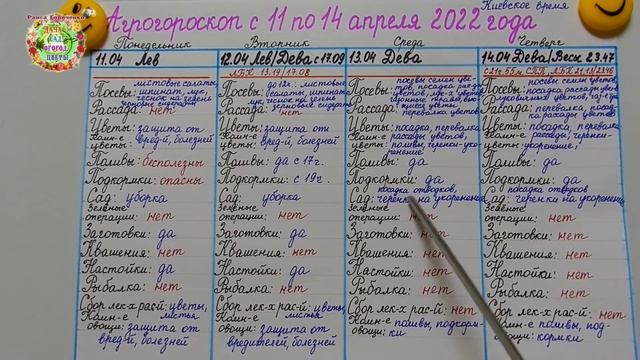 Раиса Горяченко
ДАЧА
САД
ОГОРОД
ЦВЕТЫ
Киевское время
Агрогороскоп с 11 по 14 апреля 2022 года
Понедельник
11.04 Лев
Посевы: листовые салаты, шпинат, лук, чеснок на зелень
зерновые сидераты
Рассада: нет
Цветы: защита от
Комн-е цветы: вред-й, болезней
Поливы: бесполезны
Подкормки: опасны
Сад: уборка
Зеленые
операции: нет
Заготовки: да
Квашения: нет
Настойки: да
Рыбалка: нет
Сбор лек-х рас-й: цветы,
листья
Комн-е
овощи: защита от
вред-й, болезней
Вторник
12.04 Лев/Дева с 17.09
ЛБК 13.19/17.08
Посевы: до 12ч. листовые
салаты, шпинат,
лук, чеснок на зелень
зерновые сидераты
Рассада: нет
Цветы: защита от
Комн-е цветы: вред-й, болезней
Поливы: да с 17ч.
Подкормки: с 19ч.
Сад: уборка
Зеленые
операции: нет
Заготовки: да
Квашения: нет
Настойки: да
Рыбалка: нет
Сбор лек-х рас-й: цветы,
листья
Комн-е
овощи: защита от
вредителей, болезней
Среда
13.04 Дева
Посевы: посевы семян цветов,
Рассада:
перевалка цветов
Цветы: посадка, перевалка
Комн-е цветы: рассады цветов,
поливы, черенки-укоренение
Поливы: да
Подкормки: да
посадка отводков,
Сад: черенки на укоренение
Зеленые
операции: нет
Заготовки: нет
Квашения: нет
Настойки: нет
Рыбалка: нет
Сбор лек-х рас-й: нет
Комн-е
овощи: поливы, подкормки
Четверг
14.04 Дева/Весы 23.47
ЛБК 21.11/23.46
Посевы: посевы семян цветов,
посадка рассады цветов
Рассада: перевалка, посадка
рассады цветов
Цветы: посадка, перевалка
Комн-е цветы: рассады, черенки-
укоренение
Поливы: да
Подкормки: да
посадка отводков
Сад: черенки на укоренение
Зеленые
операции: нет
Заготовки: нет
Квашения: нет
Настойки: нет
Рыбалка: нет
Сбор лек-х рас-й: нет
Комн-е
овощи: поливы, подкормки